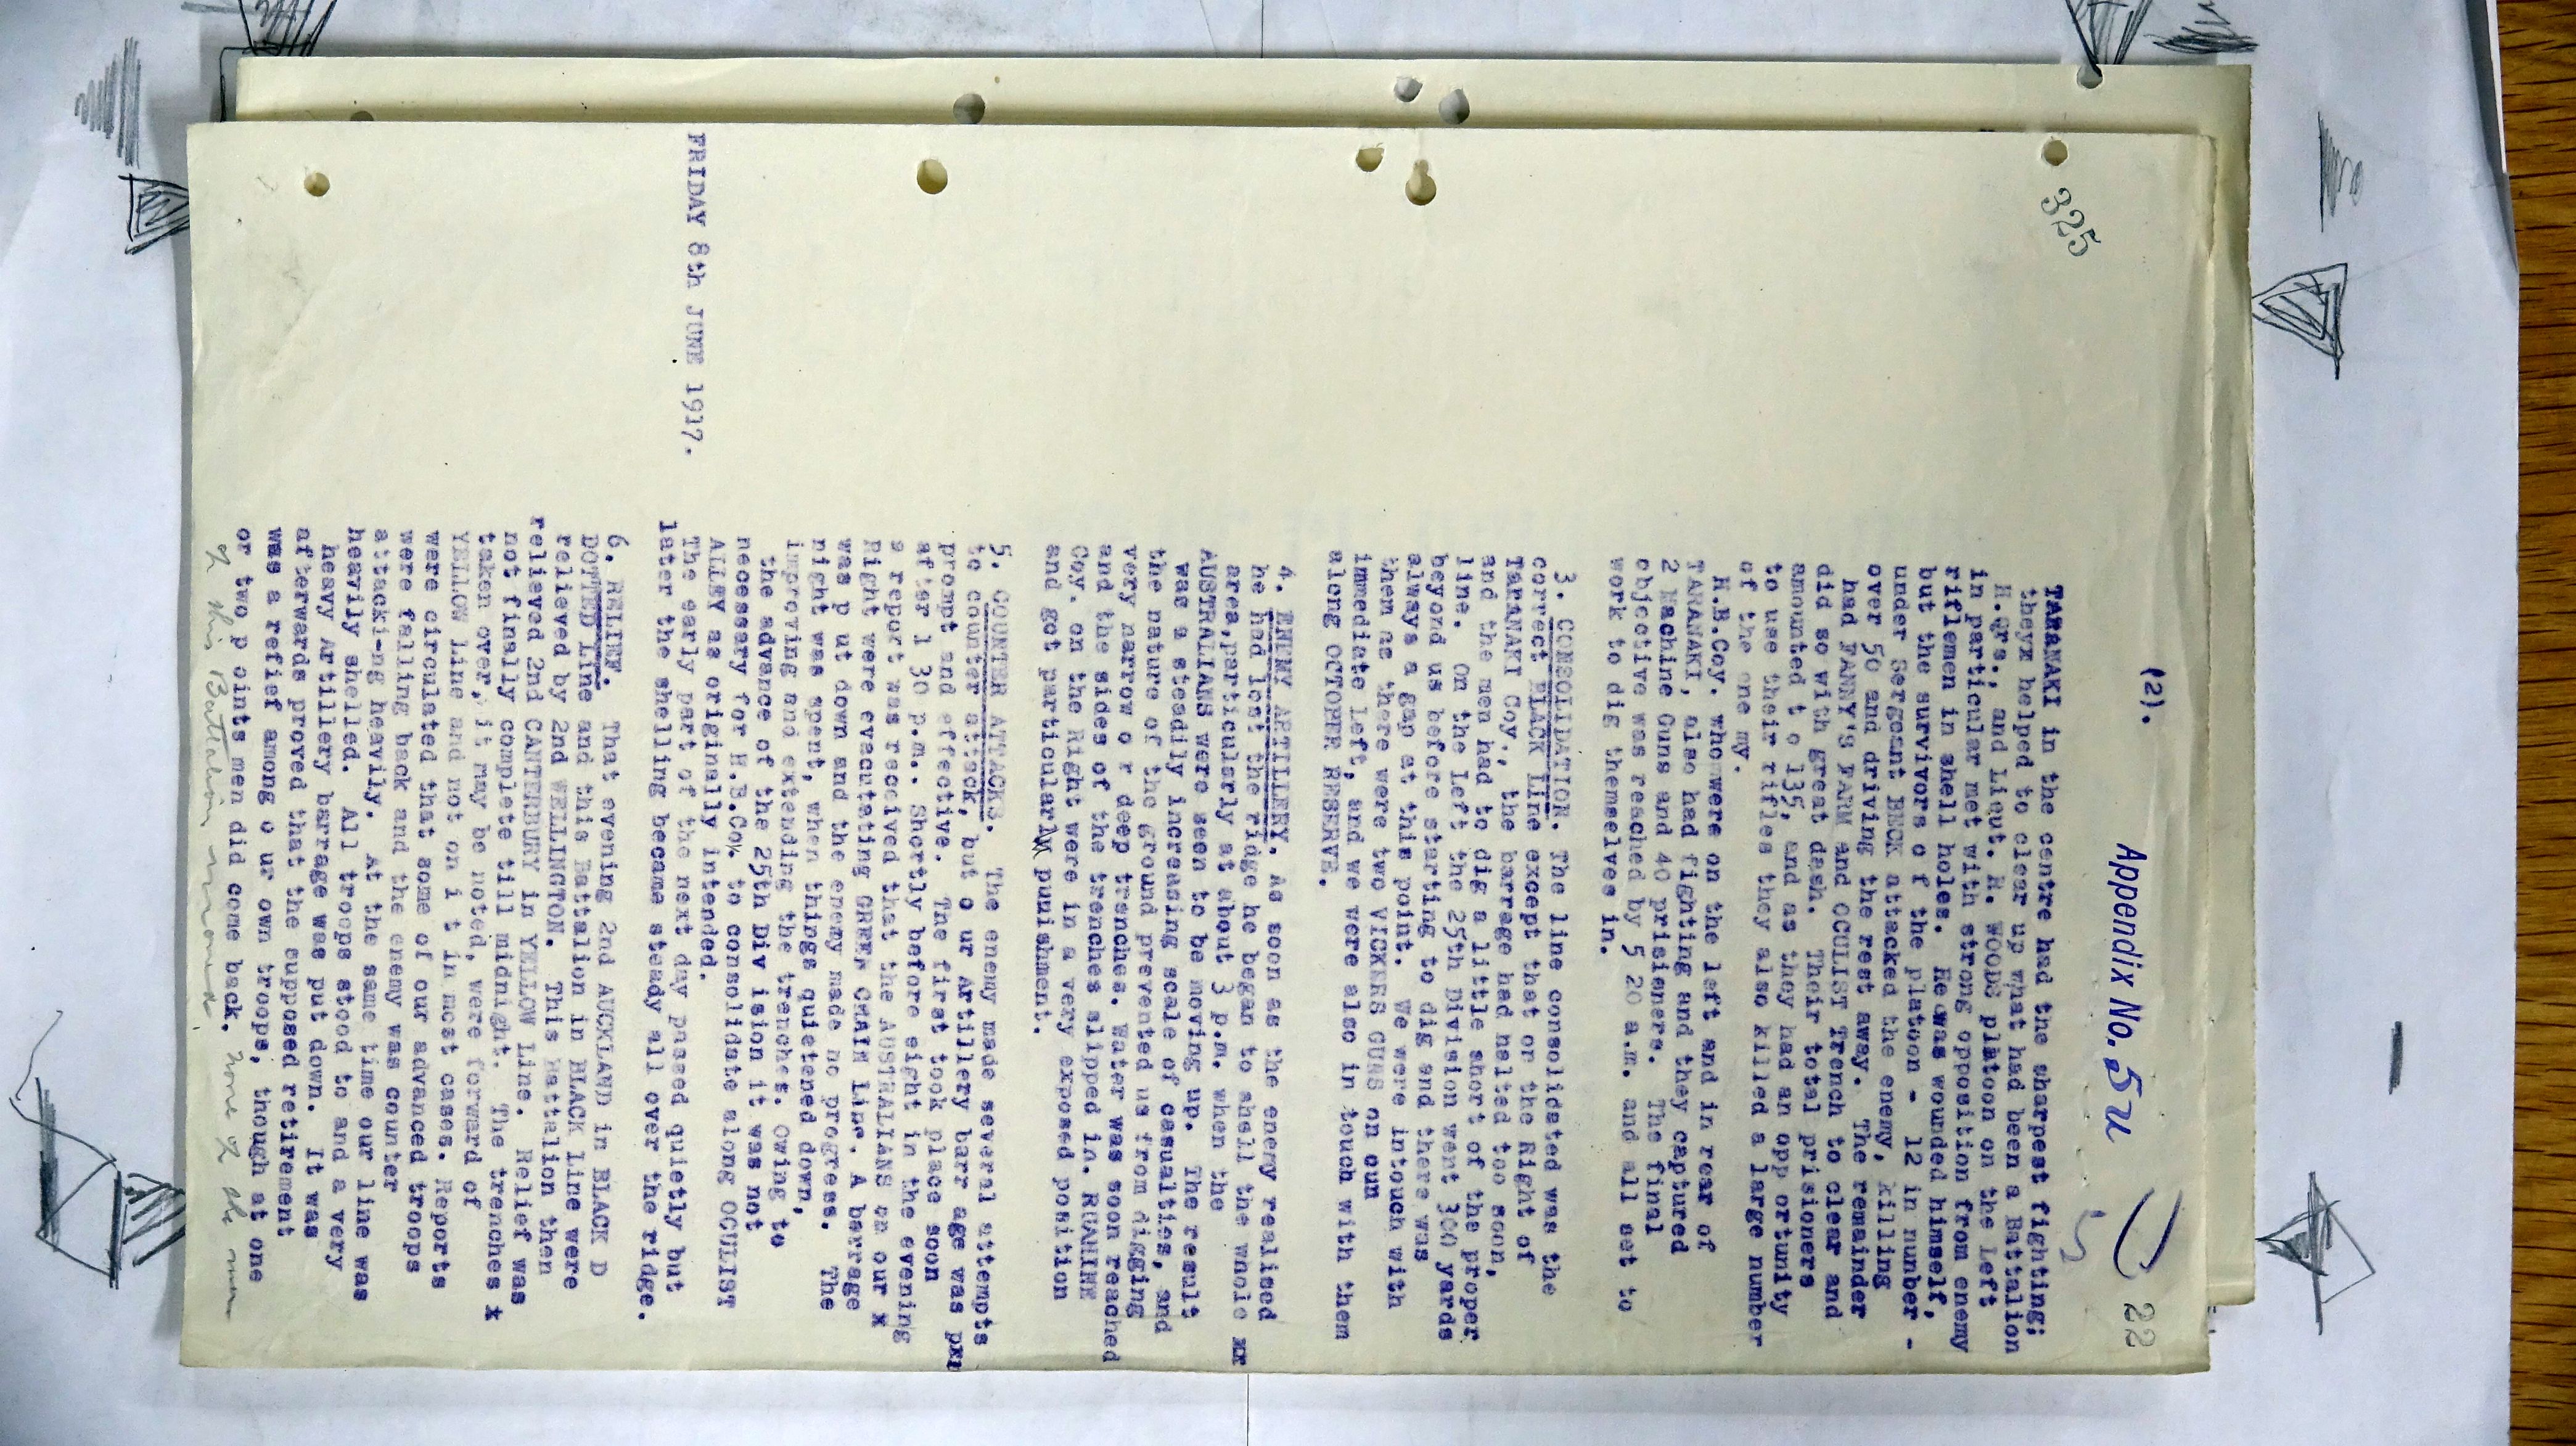 325
(2).
Appendix No. 5 u
22
TARANAKI in the centre had the sharpest fighting;
theyx helped to clear up what had been a Battalion
H.qrs., and Lieut. R. WOODS platoon on the Left
in particular met with strong opposition from enemy
riflemen in shell holes. He was wounded himself,
but the survivors o f the platoon - 12 in number -
under Sergeant BECK attacked the enemy, killing
over 50 and driving the rest away. The remainder
had FANNY'S FARM and OCULIST Trench to clear and
did so with great dash. Their total prisioners
amounted t o 135, and as they had an opp ortunity
to use their rifles they also killed a large number
of the ene my.
H.B.Coy. who were on the left and in rear of
TARANAKI, also had fighting and they captured
2 Machine Guns and 40 prisieners. The final
objective was reached by 5 20 a.m. and all set to
work to dig themselves in.
3. CONSOLIDATION. The line consolidated was the
correct BLACK Line except that on the Right of
TARANAKI Coy., the barrage had halted too soon,
and the men had to dig a little short of the proper
line. On the Left the 25th Division went 300 yards
beyond us before starting to dig and there was
always a gap at this point. We were intouch with
them as there were two VICKERS GUNS on oun
immediate Left, and we were also in touch with them
along OCTOBER RESERVE.
4. ENEMY ARTILLERY. As soon as the enemy realised
he had lost the ridge he began to shell the whole xx
area,particularly at about 3 p.m. when the
AUSTRALIANS were seen to be moving up. The result
was a steadily increasing scale of casualties, and
the nature of the ground prevented us from digging
very narrow o r deep trenches. Water was soon reached
and the sides of the trenches slipped in. RUAHINE
Coy. on the Right were in a very exposed position
and got particularly punishment.
5. COUNTER ATTACKS. The enemy made several attempts
to counter attack, but o ur Artillery barr age was
prompt and effective. The first took place soon
after 1 30 p.m.. Shortly before eight in the evening
a report was received that the AUSTRALIANS on our x
Right were evacuating GREEN CHAIN Line. A barrage
was p ut down and the enemy made no progress. The
night was spent, when things quietened down,
improving and extending the trenches. Owing to
the advance of the 25th Div ision it was not
necessary for H.B.Coy. to consolidate along OCULIST
ALLEY as originally intended.
FRIDAY 8th JUNE 1917.
The early part of the next day passed quietly but
later the shelling became steady all over the ridge.
6. RELIEF. That evening 2nd AUCKLAND in BLACK D
DOTTED Line and this Battalion in BLACK Line were
relieved by 2nd WELLINGTON. This Battalion then
relieved 2nd CANTERBURY in YELLOW Line. Relief was
not finally complete till midnight. The trenches x
taken over, it may be noted, were forward of
YELLOW Line and not on i t in most cases. Reports
were circulated that some of our advanced troops
were falling back and the enemy was counter
attacki-ng heavily. At the same time our line was
heavily shelled. All troops stood to and a very
heavy Artillery barrage was put down. It was
afterwards proved that the supposed retirement
was a relief among o ur own troops, though at one
or two p oints men did come back. None of the men
of this Battalion moved.